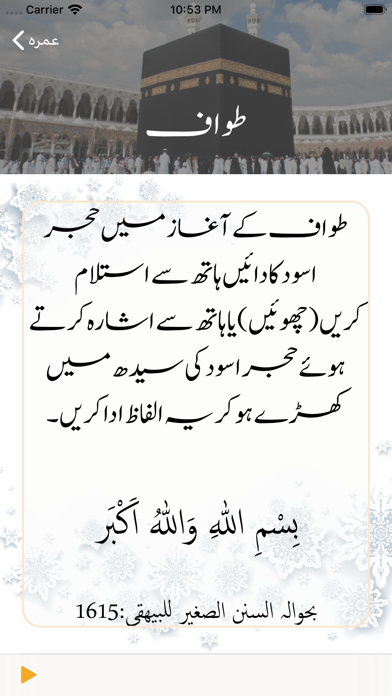 Carrier 10:53 PM
عمرہ
طواف
طواف کے آغاز میں حجر
اسود کا دائیں ہاتھ سے استلام
کریں (چھوئیں) یا ہاتھ سے اشارہ کرتے
ہوئے حجر اسود کی سیدھ میں
کھڑے ہو کر یہ الفاظ ادا کریں۔
بِسْمِ اللهِ وَاللهُ اَكْبَر
بحوالہ السنن الصغير للبيهقی:1615